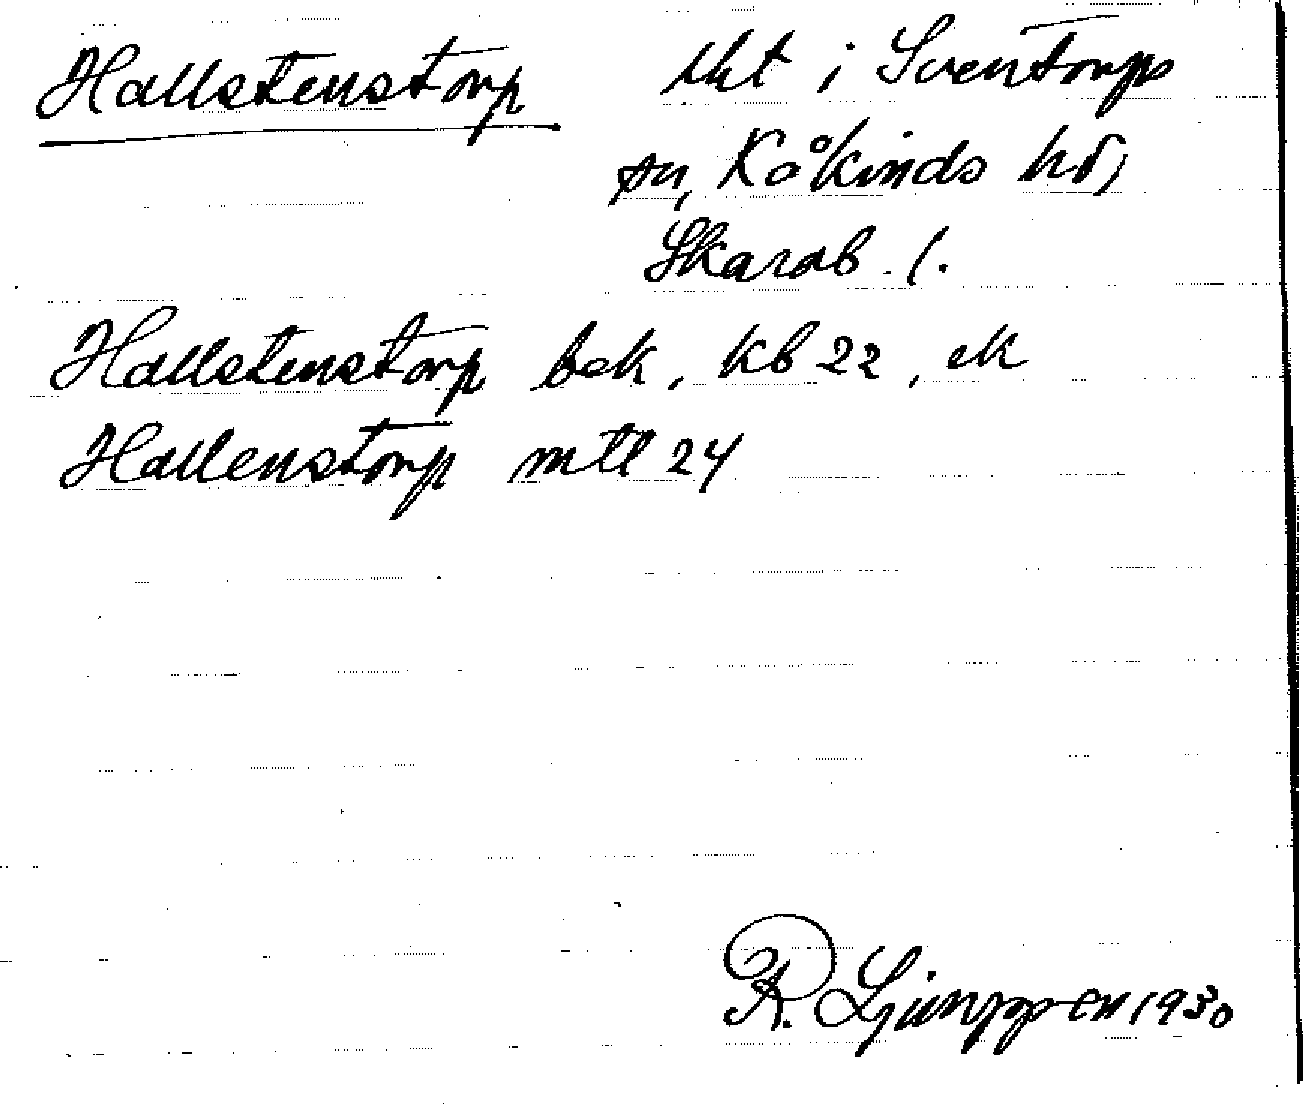 Hallstenstorp ekt i Sventorps
sn, Kåkinds hd,
Skarab. l.
Hallstenstorp bek, kb 22, ek
Hallenstorp mtl 24
R. Ljunggren 1930